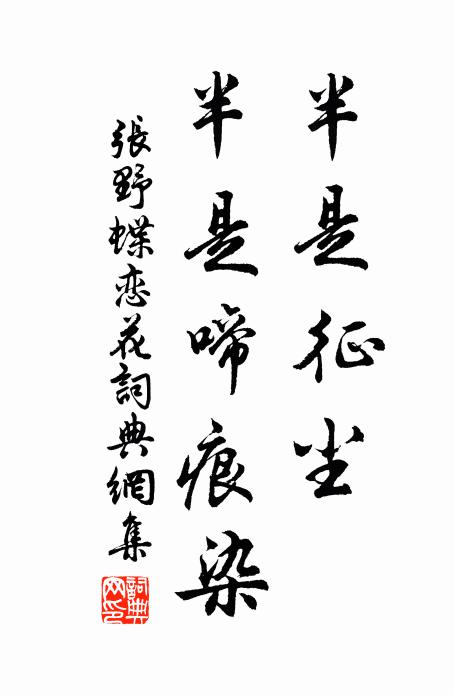 半是征尘
半是啼痕染
張野蝶恋花詞典網集
詞典網印